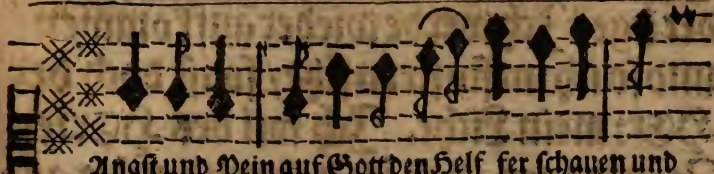 Angst und Pein auf Gott den Helf fer schauen und